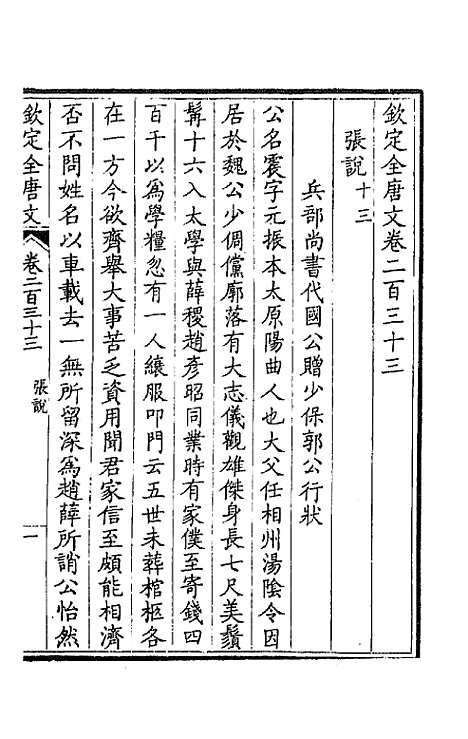 欽定全唐文卷二百三十三
張說十三
兵部尚書代國公贈少保郭公行狀
公名震字元振本太原陽曲人也大父任相州湯陰令因
居於魏公少倜儻廓落有大志儀觀雄傑身長七尺美鬚
髯十六入太學與薛稷趙彥昭同業時有家僕至寄錢四
百千以爲學糧忽有一人縗服叩門云五世未葬棺柩各
在一方今欲齊舉大事苦乏資用聞君家信至頗能相濟
否不問姓名以車載去一無所留深爲趙薛所誚公怡然
欽定全唐文 卷二百三十三 張說 一